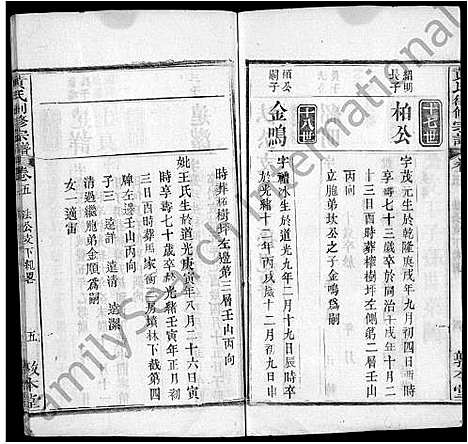 十七世
紹明長子
柏公
字茂元生於乾隆庚戌年九月初四日戌時
卒享壽七十三歲卒於同治十戌年十月二
十三日酉時葬樟樹坪左側第二層壬山
丙向
立胞弟炊公之子金鳴爲嗣
十八世
柏公嗣子
金鳴
字禮冰生於道光九年二月十九日辰時卒
於光緒十二年丙戌十二月初九日申
時葬樟樹坪左邊第三層壬山丙向
妣王氏生於道光庚寅年八月二十六日寅
時享壽七十歲卒於光緒壬寅年正月初
三日酉時葬馬家衝後房墳林下截第四
牌左邊壬山丙向
子三 遠詳 遠清 遠潔
清過繼胞弟金順爲嗣
女一適雷
黃氏創修宗譜
卷五
五
敦本堂
FamilySearch International